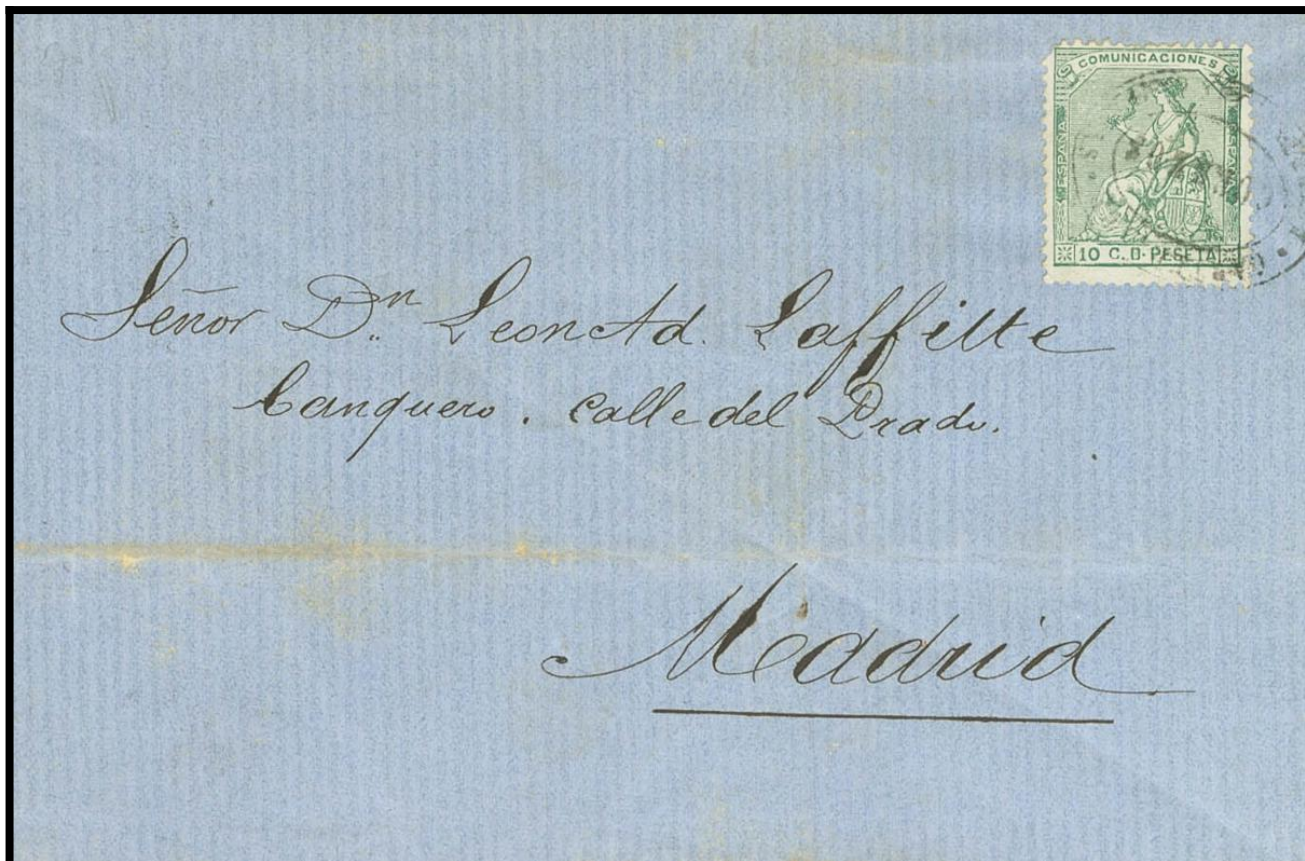 COMUNICACIONES
ESPAÑA
ESPAÑA
10 C. D. PESETA
Señor Dn. Leon Ad. Laffitte
banquero. calle del Prado.
Madrid